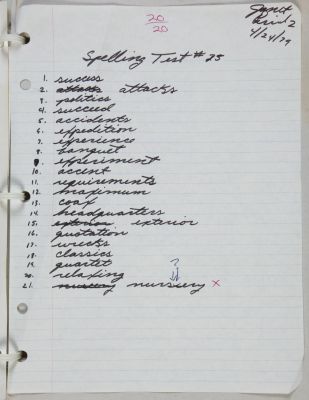 20
20
4/24/79
Spelling Test # 25
1. success
2. attacks attacks
3. politics
4. succeed
5. accidents
6. expedition
7. experience
8. banquet
9. experiment
10. accent
11. requirements
12. maximum
13. coax
14. headquarters
15. exterior exterior
16. quotation
17. wrecks
18. classics
19. quartet
20. relaxing
?
21. nursery nursery x